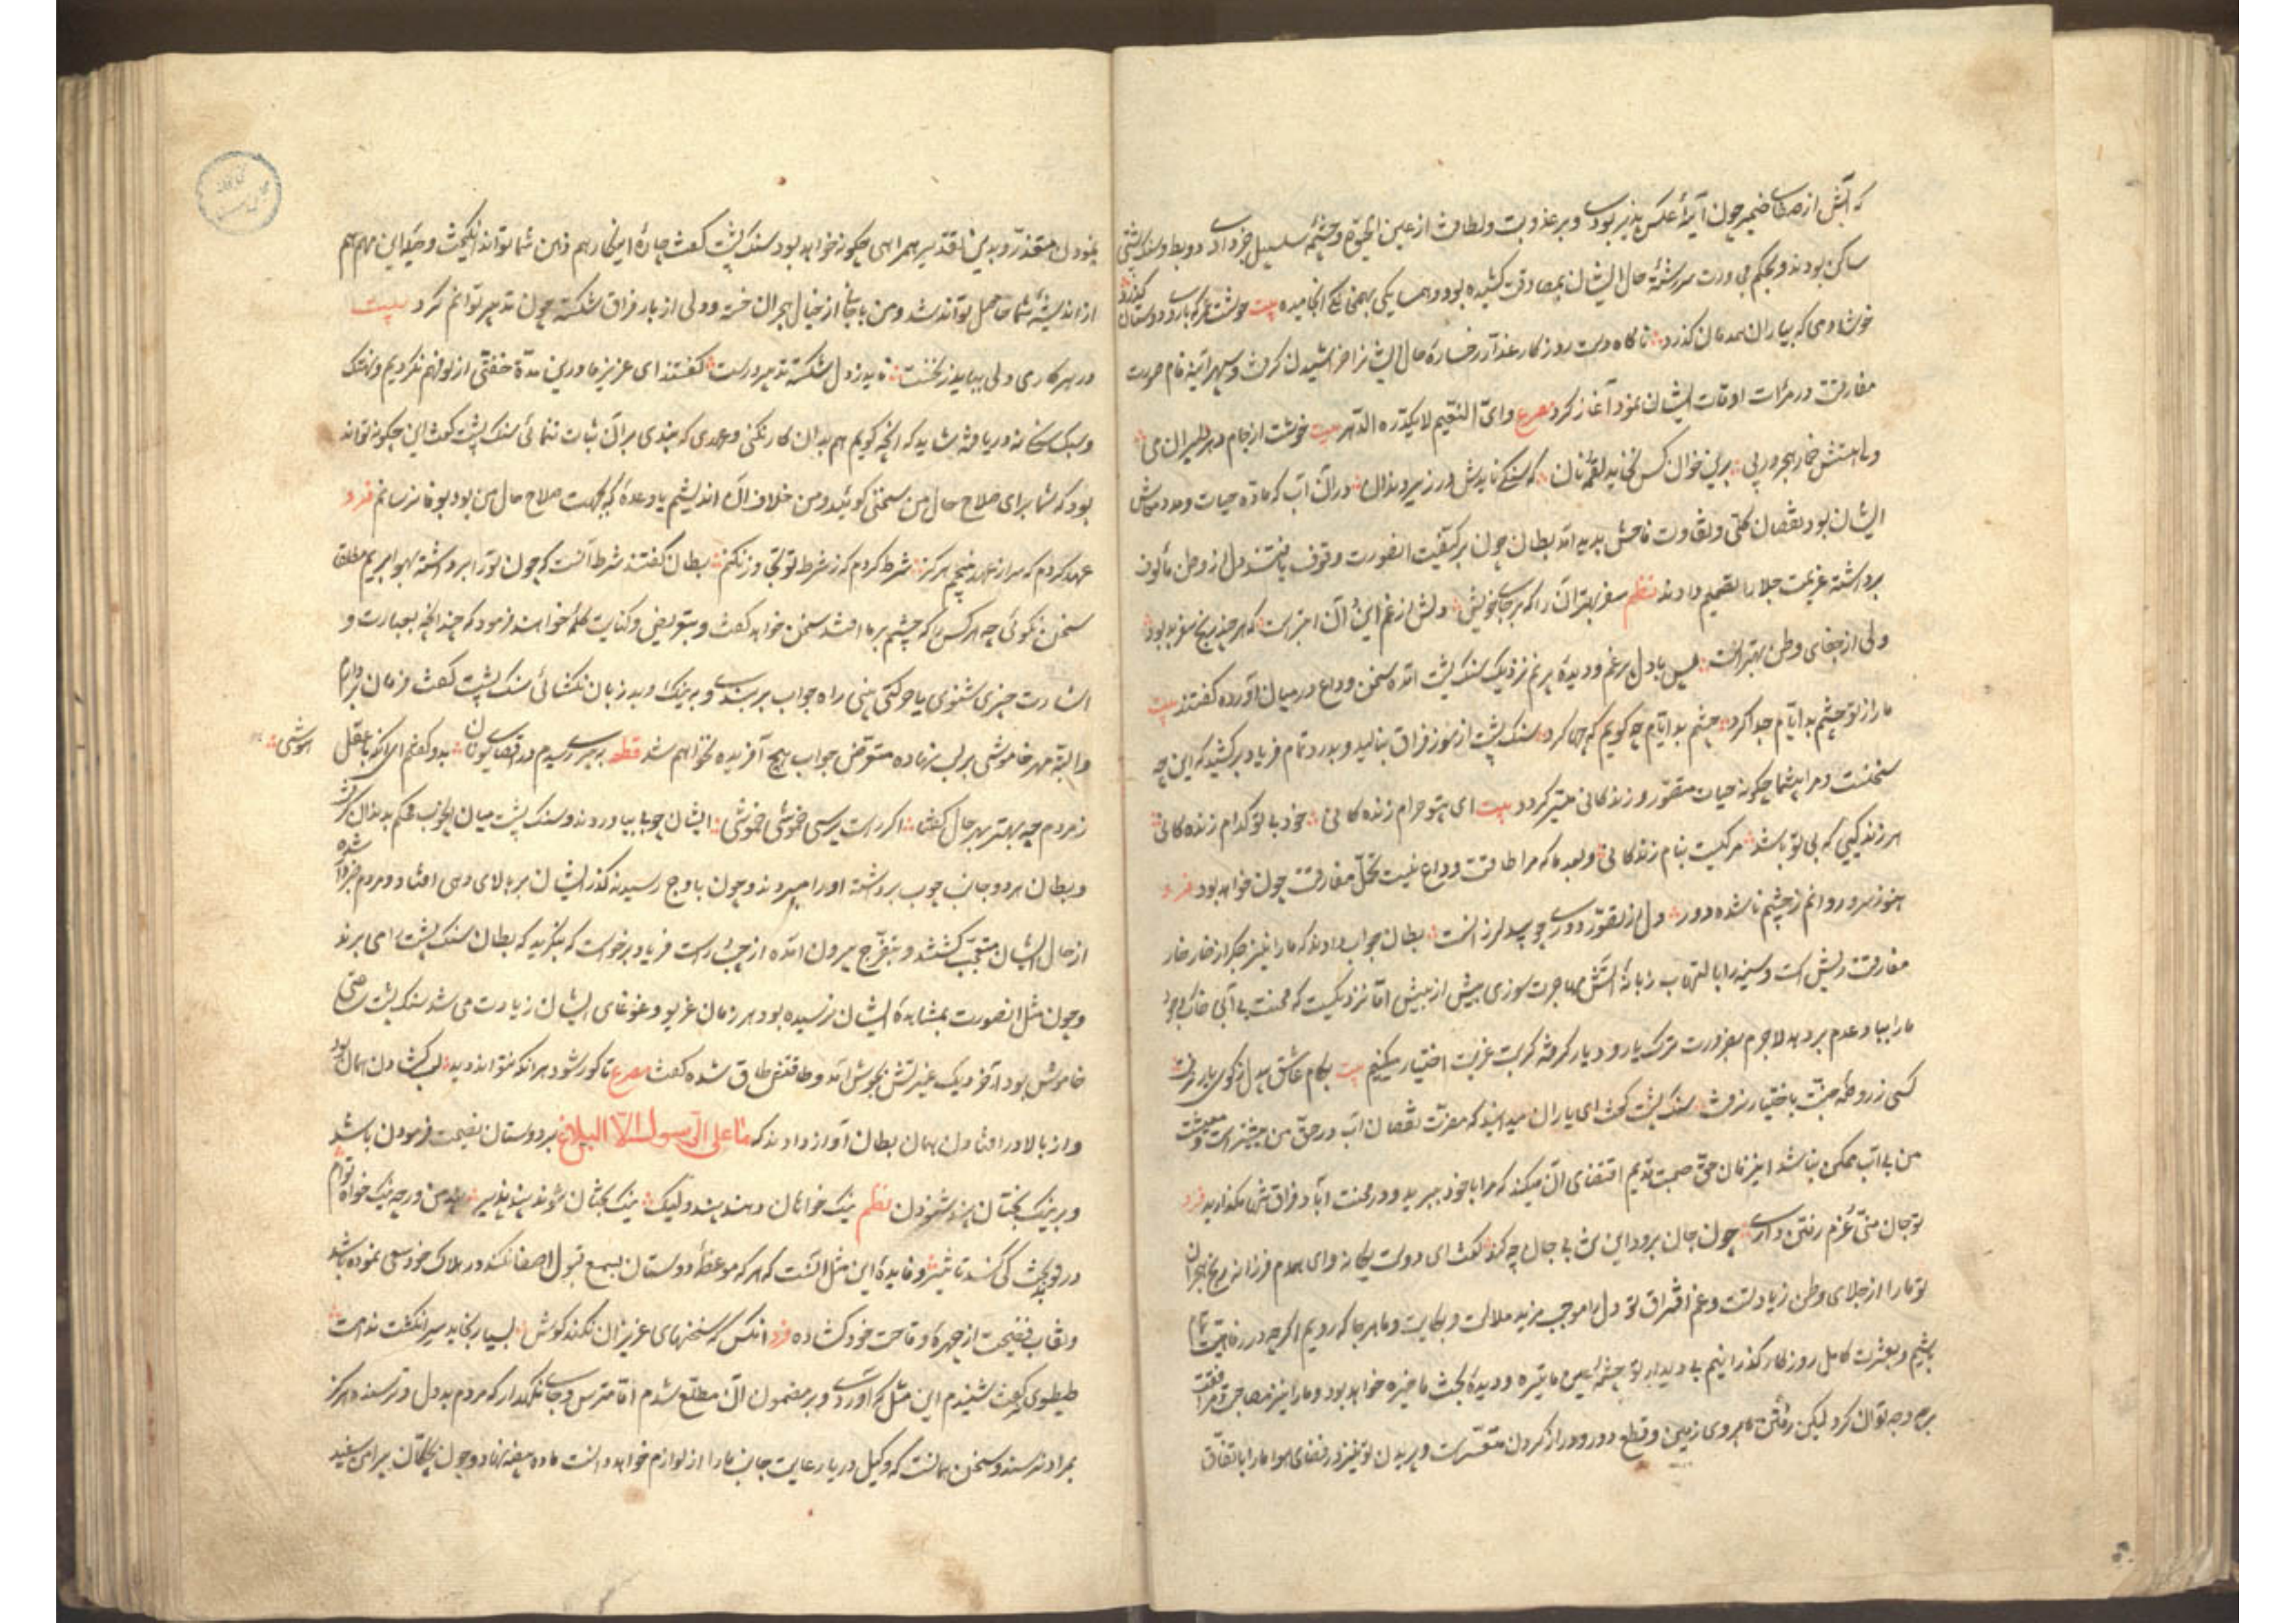 که آبش از صفای ضمیر چون آینهٔ عکس پذیر بودی و بر عذوبت و لطافت از عین الحیوة و چشمهٔ سلسبیل خبر دادی دو بط و سنک پشتی
ساکن بودند و بحکم مجاورت سررشتهٔ حال ایشان بمصادقت کشیده بود و همسایکی بهمخانکی انجامیده بیت خوشست عمر که با روی دوستان کذرد
خوشا دمی که بیاران همدمان کذرد ناکاه دست روزکار غدار رخسارهٔ حال ایشانرا خراشیدن کرفت و سپهر آینه فام صورت
مفارقت در مرآت اوقات ایشان نمودن آغاز کرد مصرع وای النعیم لا یکدره الدهر بیت خوشست از جام دهر می
ولی هستش خمار هجر در پی برین خوان کس نخاید لقمهٔ نان که سنکی نایدش در زیر دندان در آن آب که مادهٔ حیات و مدد معاش
ایشان بود نقصان کلی و تفاوت فاحش پدید آمد بطان چون بر کیفیت آنصورت وقوف یافتند دل از وطن مألوف
برداشته عزیمت جلا را تصمیم دادند نظم سفر بهتر آن را که بر جای خویش دلش از غم این و آن ابتر است که هر چند رنج سفر بد بود
ولی از جفای وطن بهتر است پس با دل پر غم و دیدهٔ پر نم نزدیک سنک پشت آمده سخن وداع در میان آورده کفتند بیت
ما را ز تو چشم بد ایام جدا کرد چشم بد ایام چه کویم که چها کرد سنک پشت از سوز فراق بنالید و بدرد تمام فریاد برکشید که این چه
سخنست و مرا بی شما چکونه حیات متصور و زندکانی میسر کردد بیت ای بیتو حرام زنده کانی خود بی تو کدام زنده کانی
هر زندکیی که بی تو باشد مرکیست بنام زندکانی و بعد ما که مرا طاقت وداع نیست تحمل مفارقت چون خواهد بود فرد
هنوز سرو روانم ز چشم ناشده دور دل از تصور دوری چو بید لرزانست بطان جواب دادند که ما را نیز جکر از خار خار
مفارقت ریش است و سینه را با التهاب زبانهٔ آتش مهاجرت سوزی بیش از بیش اما نزدیکست که محنت بی آبی خاک وجود
ما را بباد عدم بر دهد لاجرم بضرورت ترک یار و دیار کرفته کربت غربت اختیار میکنیم بیت بکام عاشق بیدل ز کوی یار نرفت
کسی ز روضهٔ جنت باختیار نرفت سنک پشت کفت ای یاران میدانید که مضرت نقصان آب در حق من بیشتر است و معیشت
من بی آب ممکن نباشد این زمان حق صحبت قدیم اقتضای آن میکند که مرا با خود ببرید و در محنت آباد فراق تنها مکذارید فرد
تو جان منی عزم رفتن داری چون جان برود این تن بی جان چه کند کفتند ای دوست یکانه و ای همدم فرزانه رنج هجران
تو ما را از جلای وطن زیادتست و غم افتراق تو دل را موجب مزید ملالت و بکایت و ما هر جا که رویم اکرچه در رفاهیت تمام
باشیم و بعشرت کامل روزکار کذرانیم بی دیدار تو چشمهٔ عیش ما تیره و دیدهٔ بخت ما خیره خواهد بود و ما را نیز مصاحبت و مرافقت
بر روی زمین و قطع دور و دراز کردن متعسر است و پریدن تو نیز در فضای هوا ما را باتفاق
نمودن متعذر و بدین تقدیر همراهی چکونه خواهد بود سنک پشت کفت چارهٔ اینکار هم ذهن شما تواند انکیخت و حیلهٔ این مهم هم
از اندیشهٔ شما حاصل تواند شد و من با جانی از خیال هجران خسته و دلی از بار فراق شکسته چون تدبیر توانم کرد بیت
در هر کاری دلی بباید ز نخست ناید ز دل شکسته تدبیر درست کفتند ای عزیز ما درین مدت خفتی از تو فهم کردیم و
و سبکسخنی نو دریافته شاید که آنچه کویم هم بدان کار نکنی و عهدی که بندی بر آن ثبات ننمائی سنک پشت کفت این چکونه تواند
بود که شما برای صلاح حال من سخنی کوئید و من خلاف آن اندیشم یا وعدهٔ که بجهت صلاح حال من بود بوفا نرسانم فرد
عهد کردم که سر از عهد نپیچم هرکز شرط کردم که ز شرط تو تجاوز نکنم بطان کفتند شرط آنست که چون تو را برداشته بهوا بریم مطلقا
سخن نکوئی چه هر کس را که چشم بر ما افتد سخن خواهد کفت و بتعریض و کنایت کلمهٔ خواهند فرمود که چندانچه بعبارت و
اشارت چیزی شنوی یا حرکتی بینی راه جواب بربندی و به نیک و بد زبان نکشائی سنک پشت کفت فرمان بردارم
و البته مهر خاموشی بر لب نهاده متعرض جواب هیچ آفریده نخواهم شد قطعه بپیری رسیدم در اقصای یونان بدو کفتم ای آنکه با عقل هوشی
ز مردم چه بهتر بهر حال کفتا اکر راست پرسی خموشی خموشی ایشان چوبی بیاوردند و سنک پشت میان چوب محکم بدندان کرفت
و بطان هر دو جانب چوب برداشته او را میبردند و چون باوج رسیدند کذر ایشان بر بالای دهی افتاد و مردم خبردار شده
از حال ایشان متعجب کشتند و بتفرج بیرون آمده از چپ و راست فریاد برخواست که بنکرید که بطان سنک پشت را می برند
و چون مثل آنصورت بمشاهدهٔ ایشان نرسیده بود هر زمان غریو و غوغای ایشان زیادت می شد سنک پشت ساعتی
خاموش بود آخر دیک غیرتش بجوش آمد و طاقتش طاق شده کفت مصرع تا کور شود هر آنکه نتواند دید لب کشادن همان بود
و از بالا در افتادن همان بطان آواز دادند که ما علی الرسول الا البلاغ بر دوستان نصیحت فرمودن باشد
و بر نیک بختان پند شنودن نظم نیک خواهان دهند پند ولیک نیک بختان بوند پند پذیر پند من ورچه نیک خواه توام
در تو بدبخت کی کند تاثیر و فایدهٔ این مثل آنست که هر که موعظهٔ دوستان بسمع قبول اصغا نکند در هلاک خود سعی نموده باشد
و نقاب فضیحت از چهرهٔ وقاحت خود کشاده فرد آنکس که سخنهای عزیزان نکند کوش بسیار بخاید سر انکشت ندامت
طیطوی کفت شنیدم این مثل که آوردی و بر مضمون آن مطلع شدم اما مترس و جای نکهدار که مردم بددل و ترسنده هرکز
بمراد نرسند و سخن همانست که وکیل دریا رعایت جانب ما را از لوازم خواهد دانست ماده بیضه نهاد و چون بچکان بیرامن سفید